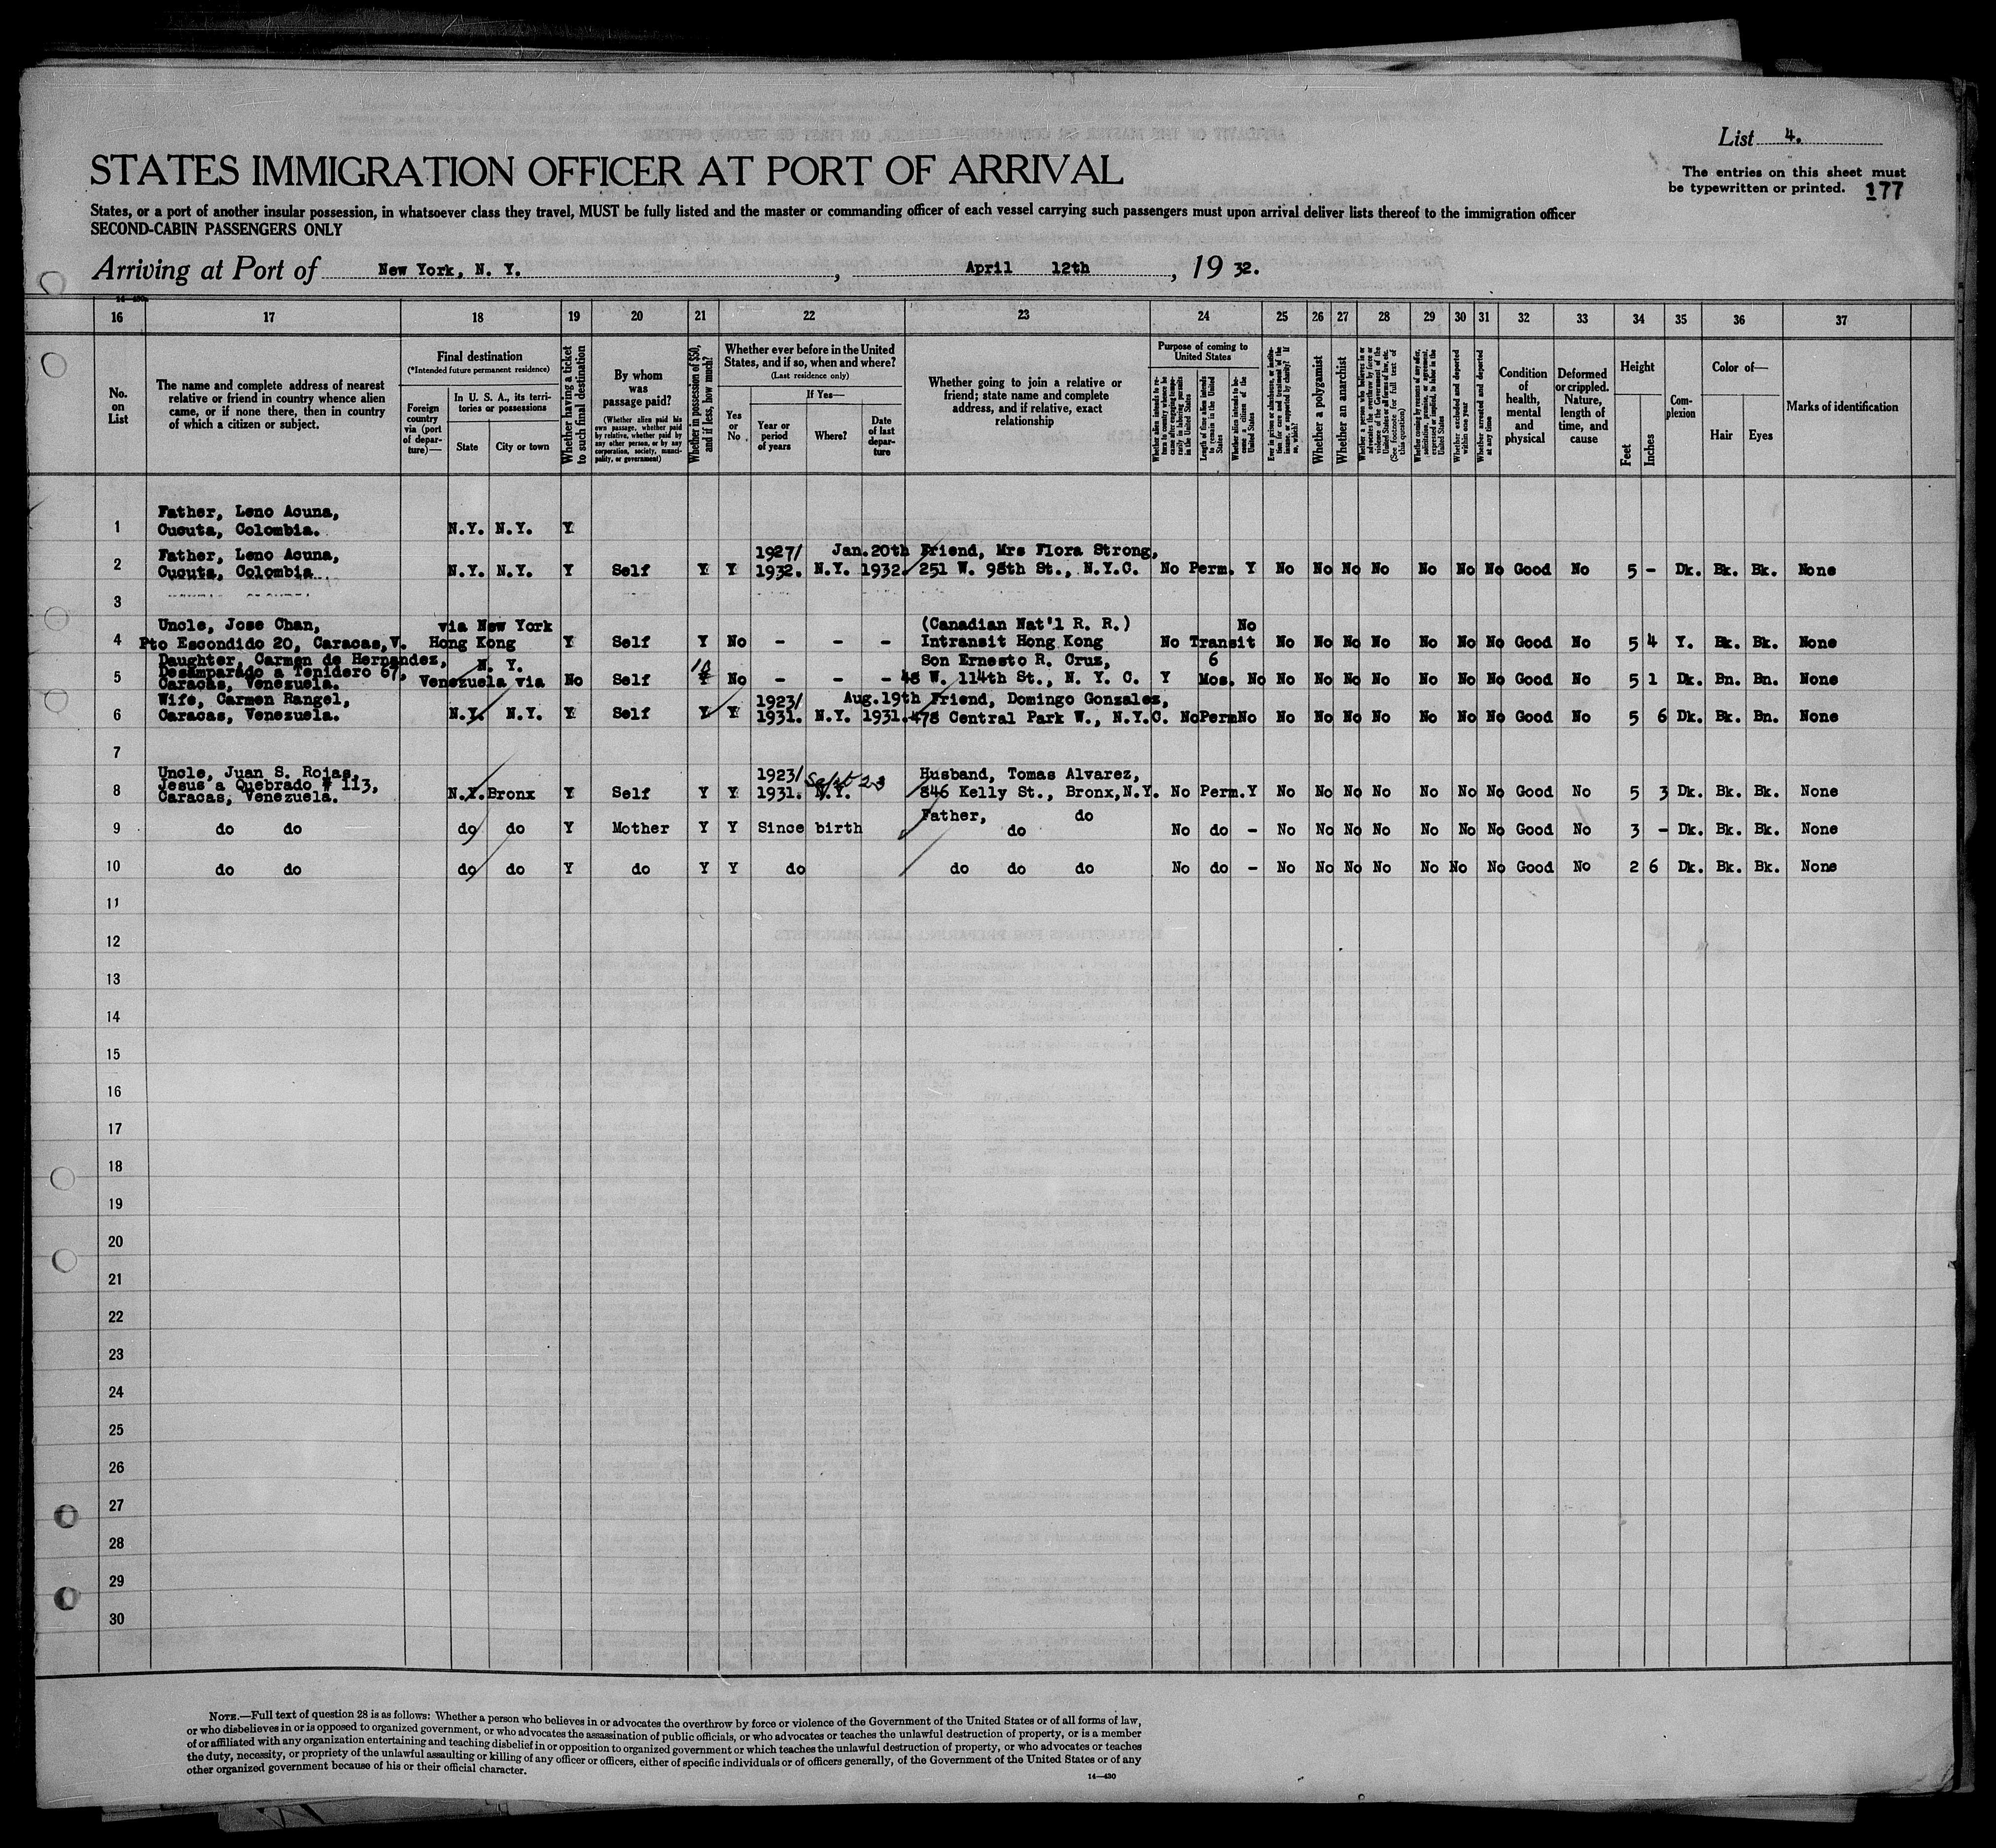 List 4.
STATES IMMIGRATION OFFICER AT PORT OF ARRIVAL
The entries on this sheet must
be typewritten or printed. 177
States, or a port of another insular possession, in whatsoever class they travel, MUST be fully listed and the master or commanding officer of each vessel carrying such passengers must upon arrival deliver lists thereof to the immigration officer
SECOND-CABIN PASSENGERS ONLY
Arriving at Port of New York, N. Y. , April 12th , 19 32.
16 17 18 19 20 21 22 23 24 25 26 27 28 29 30 31 32 33 34 35 36 37
No.
on
List
The name and complete address of nearest
relative or friend in country whence alien
came, or if none there, then in country
of which a citizen or subject.
Final destination
(*Intended future permanent residence)
Foreign
country
via (port
of depar-
ture)—
In U. S. A., its terri-
tories or possessions
State
City or town
Whether having a ticket
to such final destination
By whom
was
passage paid?
(Whether alien paid his
own passage, whether paid
by relative, whether paid by
any other person, or by any
corporation, society, munici-
pality, or government)
Whether in possession of $50,
and if less, how much?
Whether ever before in the United
States, and if so, when and where?
(Last residence only)
Yes
or
No
If Yes—
Year or
period
of years
Where?
Date
of last
depar-
ture
Whether going to join a relative or
friend; state name and complete
address, and if relative, exact
relationship
Purpose of coming to
United States
Whether alien intends to re-
turn to country whence he
came after engaging tempo-
rarily in laboring pursuits
in the United States
Length of time alien intends
to remain in the United
States
Whether alien intends to be-
come a citizen of the
United States
Whether a polygamist
Whether an anarchist
(See footnote for full text of
this question)
Whether excluded and deported
within one year
Whether arrested and deported
at any time
Condition
of
health,
mental
and
physical
Deformed
or crippled.
Nature,
length of
time, and
cause
Height
Feet
Inches
Com-
plexion
Color of—
Hair
Eyes
Marks of identification
Father, Leno Acuna,
1 Cucuta, Colombia. N.Y. N.Y. Y
Father, Leno Acuna, 1927/ Jan.20th Friend, Mrs Flora Strong,
2 Cucuta, Colombia N.Y. N.Y. Y Self Y Y 1932. N.Y. 1932. 251 W. 98th St., N.Y.C. No Perm. Y No No No No No No No Good No 5 - Dk. Bk. Bk. None
3
Uncle, Jose Chan, via New York (Canadian Nat'l R. R.) No
4 Pto Escondido 20, Caracas,V. Hong Kong Y Self Y No - - - Intransit Hong Kong No Transit No No No No No No No Good No 5 4 Y. Bk. Bk. None
Daughter, Carmen de Hernandez, N. Y. Son Ernesto R. Cruz, 6
Desamparado a Tenidero 67,
5 Caracas, Venezuela. Venezuela via No Self Y No - - - 48 W. 114th St., N. Y. C. Y Mos. No No No No No No No No Good No 5 1 Dk. Bn. Bn. None
Wife, Carmen Rangel, 1923/ Aug.19th Friend, Domingo Gonzalez,
6 Caracas, Venezuela. N.Y. N.Y. Y Self Y Y 1931. N.Y. 1931. 478 Central Park W., N.Y.C. No Perm No No No No No No No No Good No 5 6 Dk. Bk. Bn. None
7
Uncle, Juan S. Rojas, 1923/ Sept 23 Husband, Tomas Alvarez,
Jesus a Quebrado # 113,
8 Caracas, Venezuela. N.Y. Bronx Y Self Y Y 1931. N.Y. 846 Kelly St., Bronx,N.Y. No Perm. Y No No No No No No No Good No 5 3 Dk. Bk. Bk. None
Father, do
9 do do do do Y Mother Y Y Since birth do No do - No No No No No No No Good No 3 - Dk. Bk. Bk. None
10 do do do do Y do Y Y do do do do No do - No No No No No No No Good No 2 6 Dk. Bk. Bk. None
11
12
13
14
15
16
17
18
19
20
21
22
23
24
25
26
27
28
29
30
NOTE.—Full text of question 28 is as follows: Whether a person who believes in or advocates the overthrow by force or violence of the Government of the United States or of all forms of law,
or who disbelieves in or is opposed to organized government, or who advocates the assassination of public officials, or who advocates or teaches the unlawful destruction of property, or is a member
of or affiliated with any organization entertaining and teaching disbelief in or opposition to organized government or which teaches the unlawful destruction of property, or who advocates or teaches
the duty, necessity, or propriety of the unlawful assaulting or killing of any officer or officers, either of specific individuals or of officers generally, of the Government of the United States or of any
other organized government because of his or their official character.
14—430